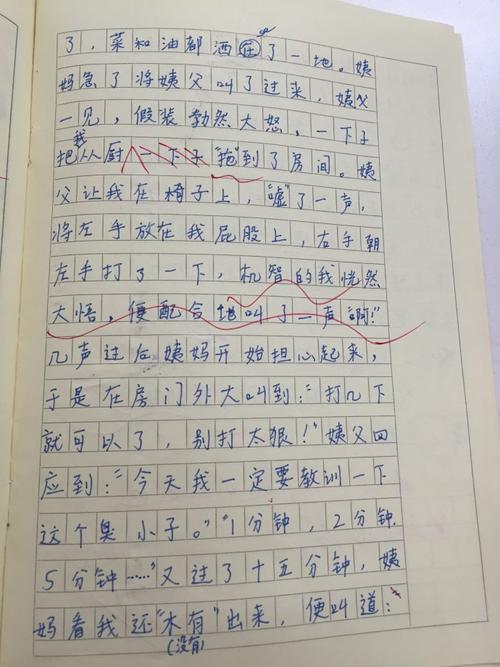 了，菜和油都洒在了一地。姨
妈急了将姨父叫了过来，姨父
一见，假装勃然大怒，一下子
把我从厨一下子"拖"到了房间。姨
父让我在椅子上，"嘘"了一声，
将左手放在我屁股上，右手朝
左手打了一下，机智的我恍然
大悟，便配合地叫了一声"啊！"
几声过后姨妈开始担心起来，
于是在房门外大叫到："打几下
就可以了，别打太狠！"姨父回
应到："今天我一定要教训一下
这个臭小子。"1分钟，2分钟，
5分钟……"又过了十五分钟，姨
妈看我还"木有"出来，便叫道：
(没有)